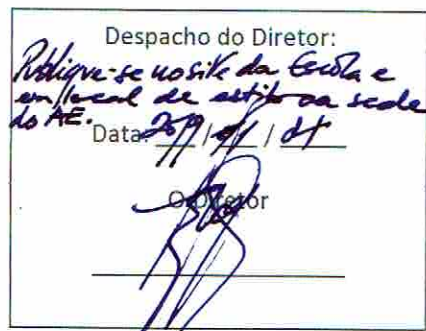 Despacho do Diretor:
Publique-se no site da Escola e
em local de estilo na sede
do AE.
Data: 2019 / /
O Diretor